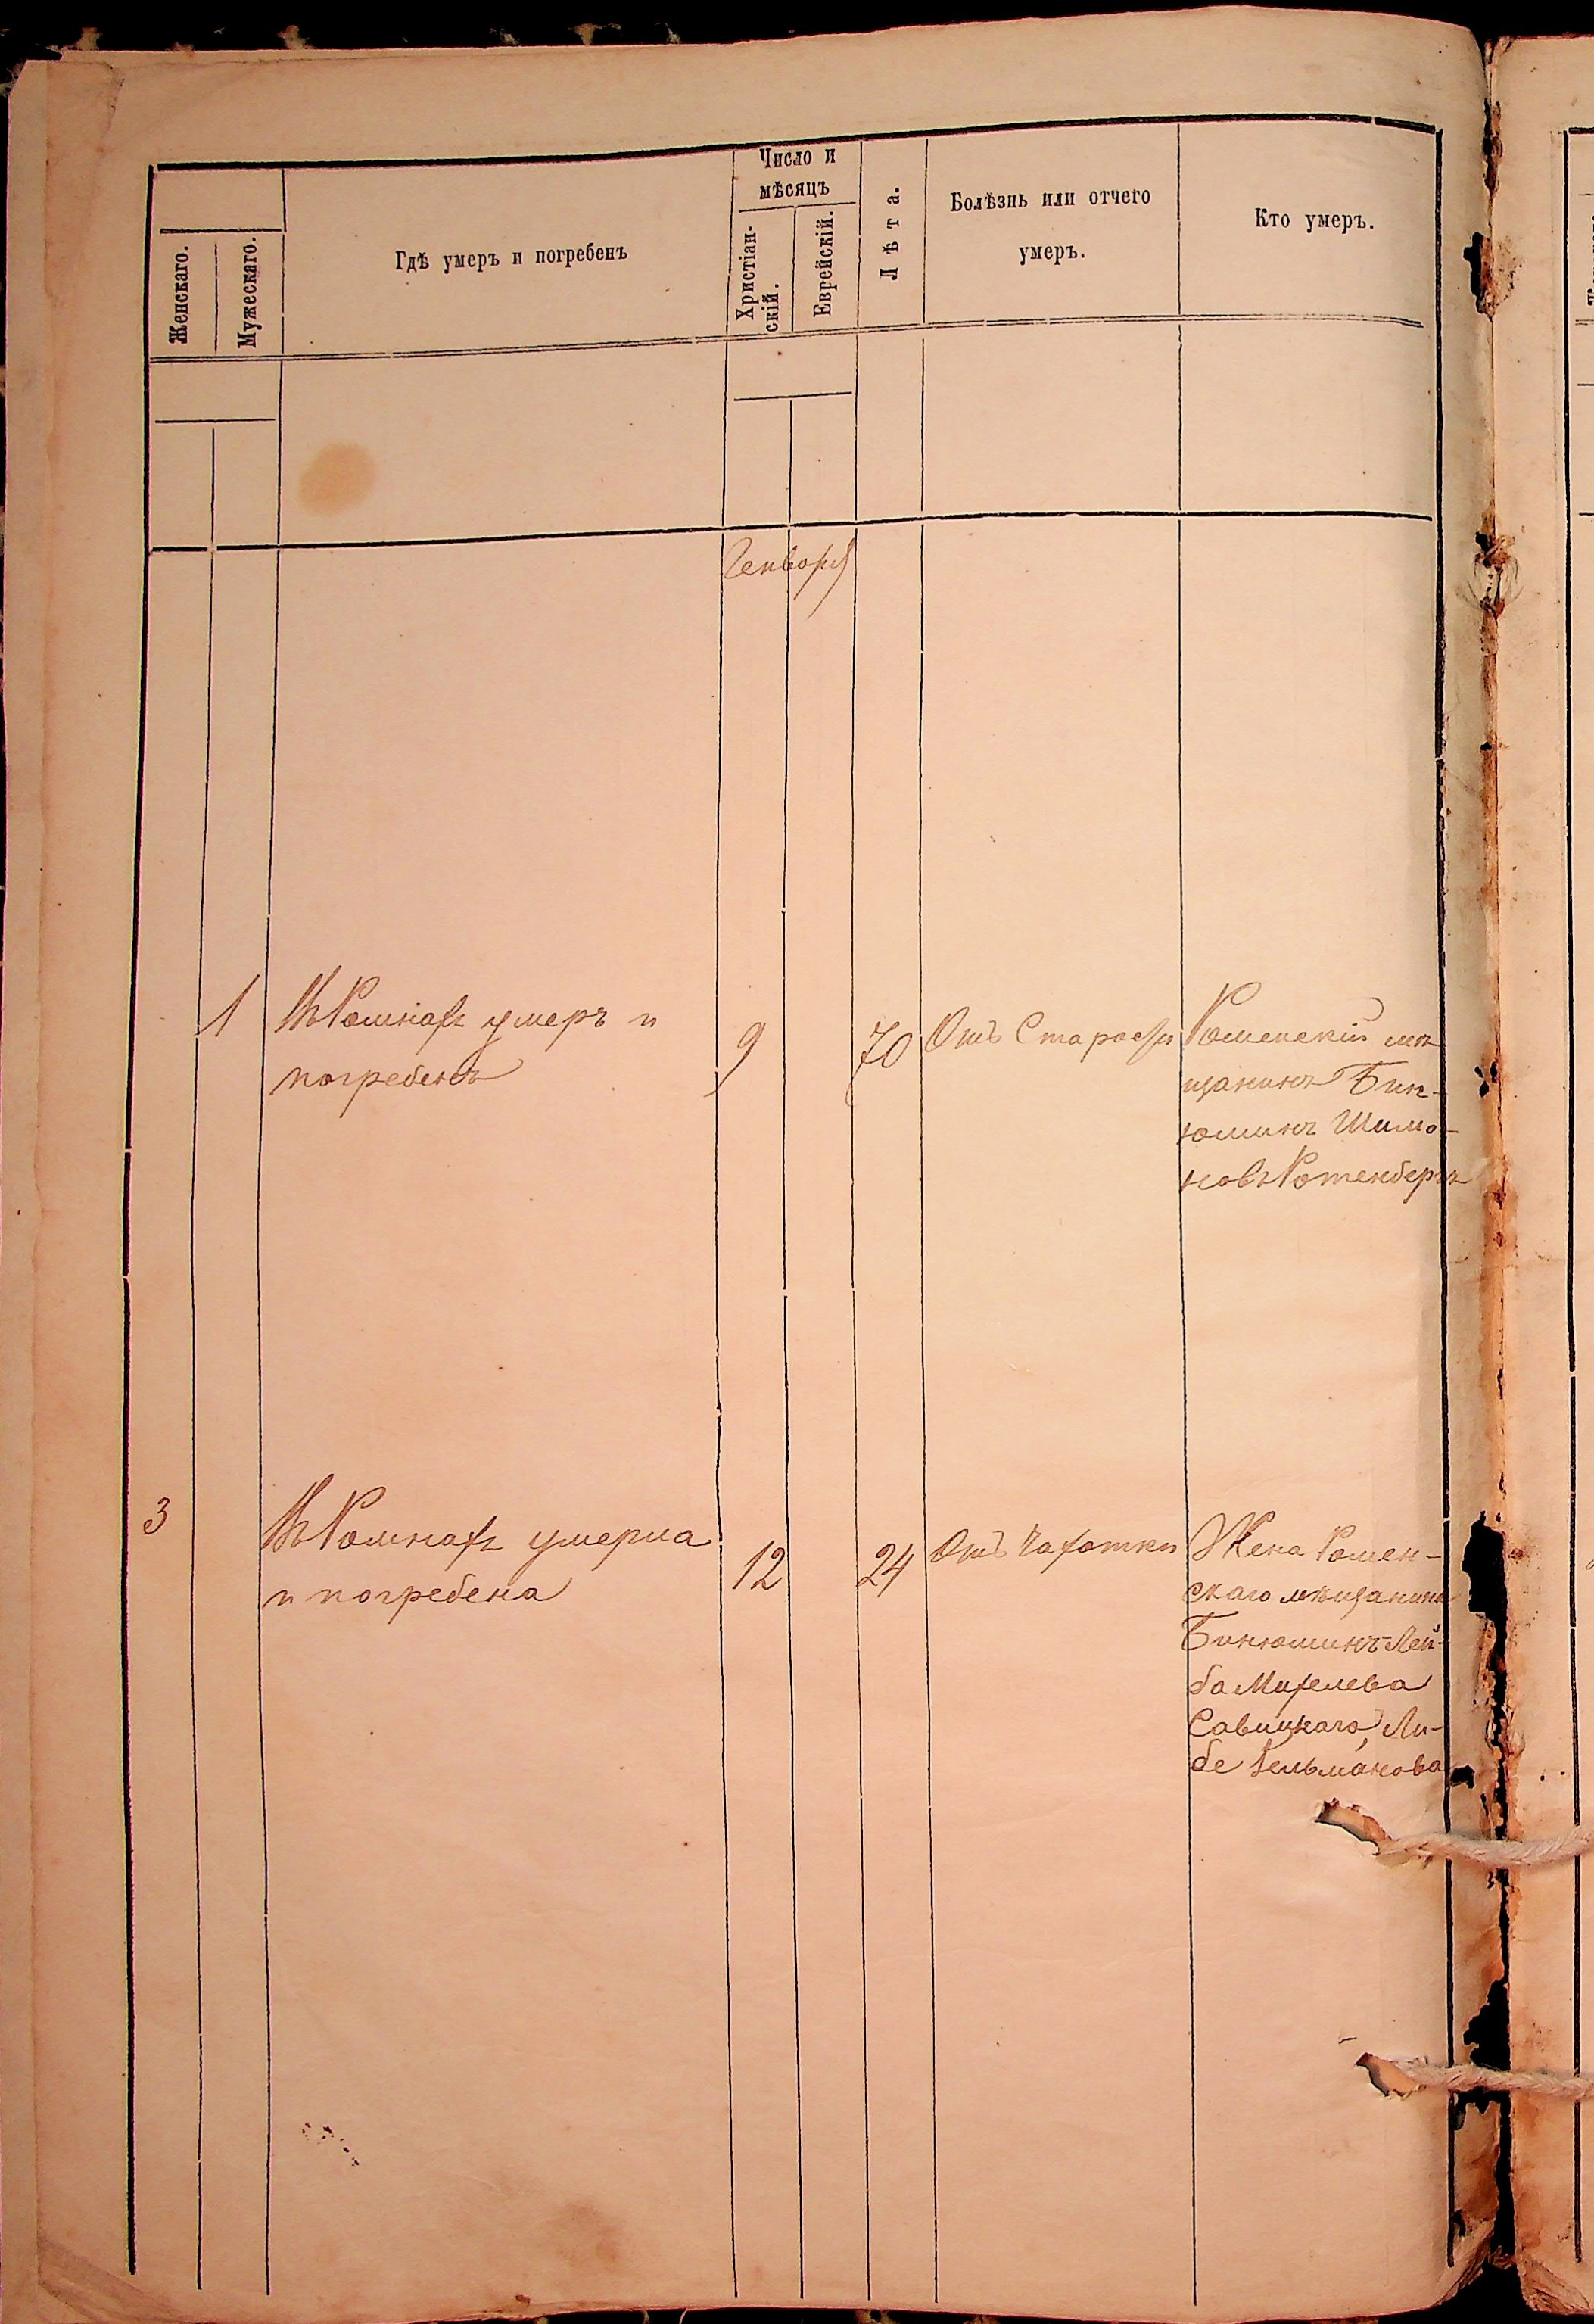 Женскаго.
Мужескаго.
Гдѣ умеръ и погребенъ
Число и
мѣсяцъ
Христіан-
скій.
Еврейскій.
Лѣта.
Болѣзнь или отчего
умеръ.
Кто умеръ.
Генворя
1
Въ Ромнахъ умеръ и
погребенъ
9
70
Отъ Старости
Роменскій мѣ
щанинъ Бин-
юминъ Шимо-
новъ Ротенбергъ
3
Въ Ромнахъ умерла
и погребена
12
24
Отъ Чахотки
Жена Ромен-
скаго мѣщанина
Бинюминъ-Лей-
ба Михелева
Савицкаго, Ли-
бе Гельманова